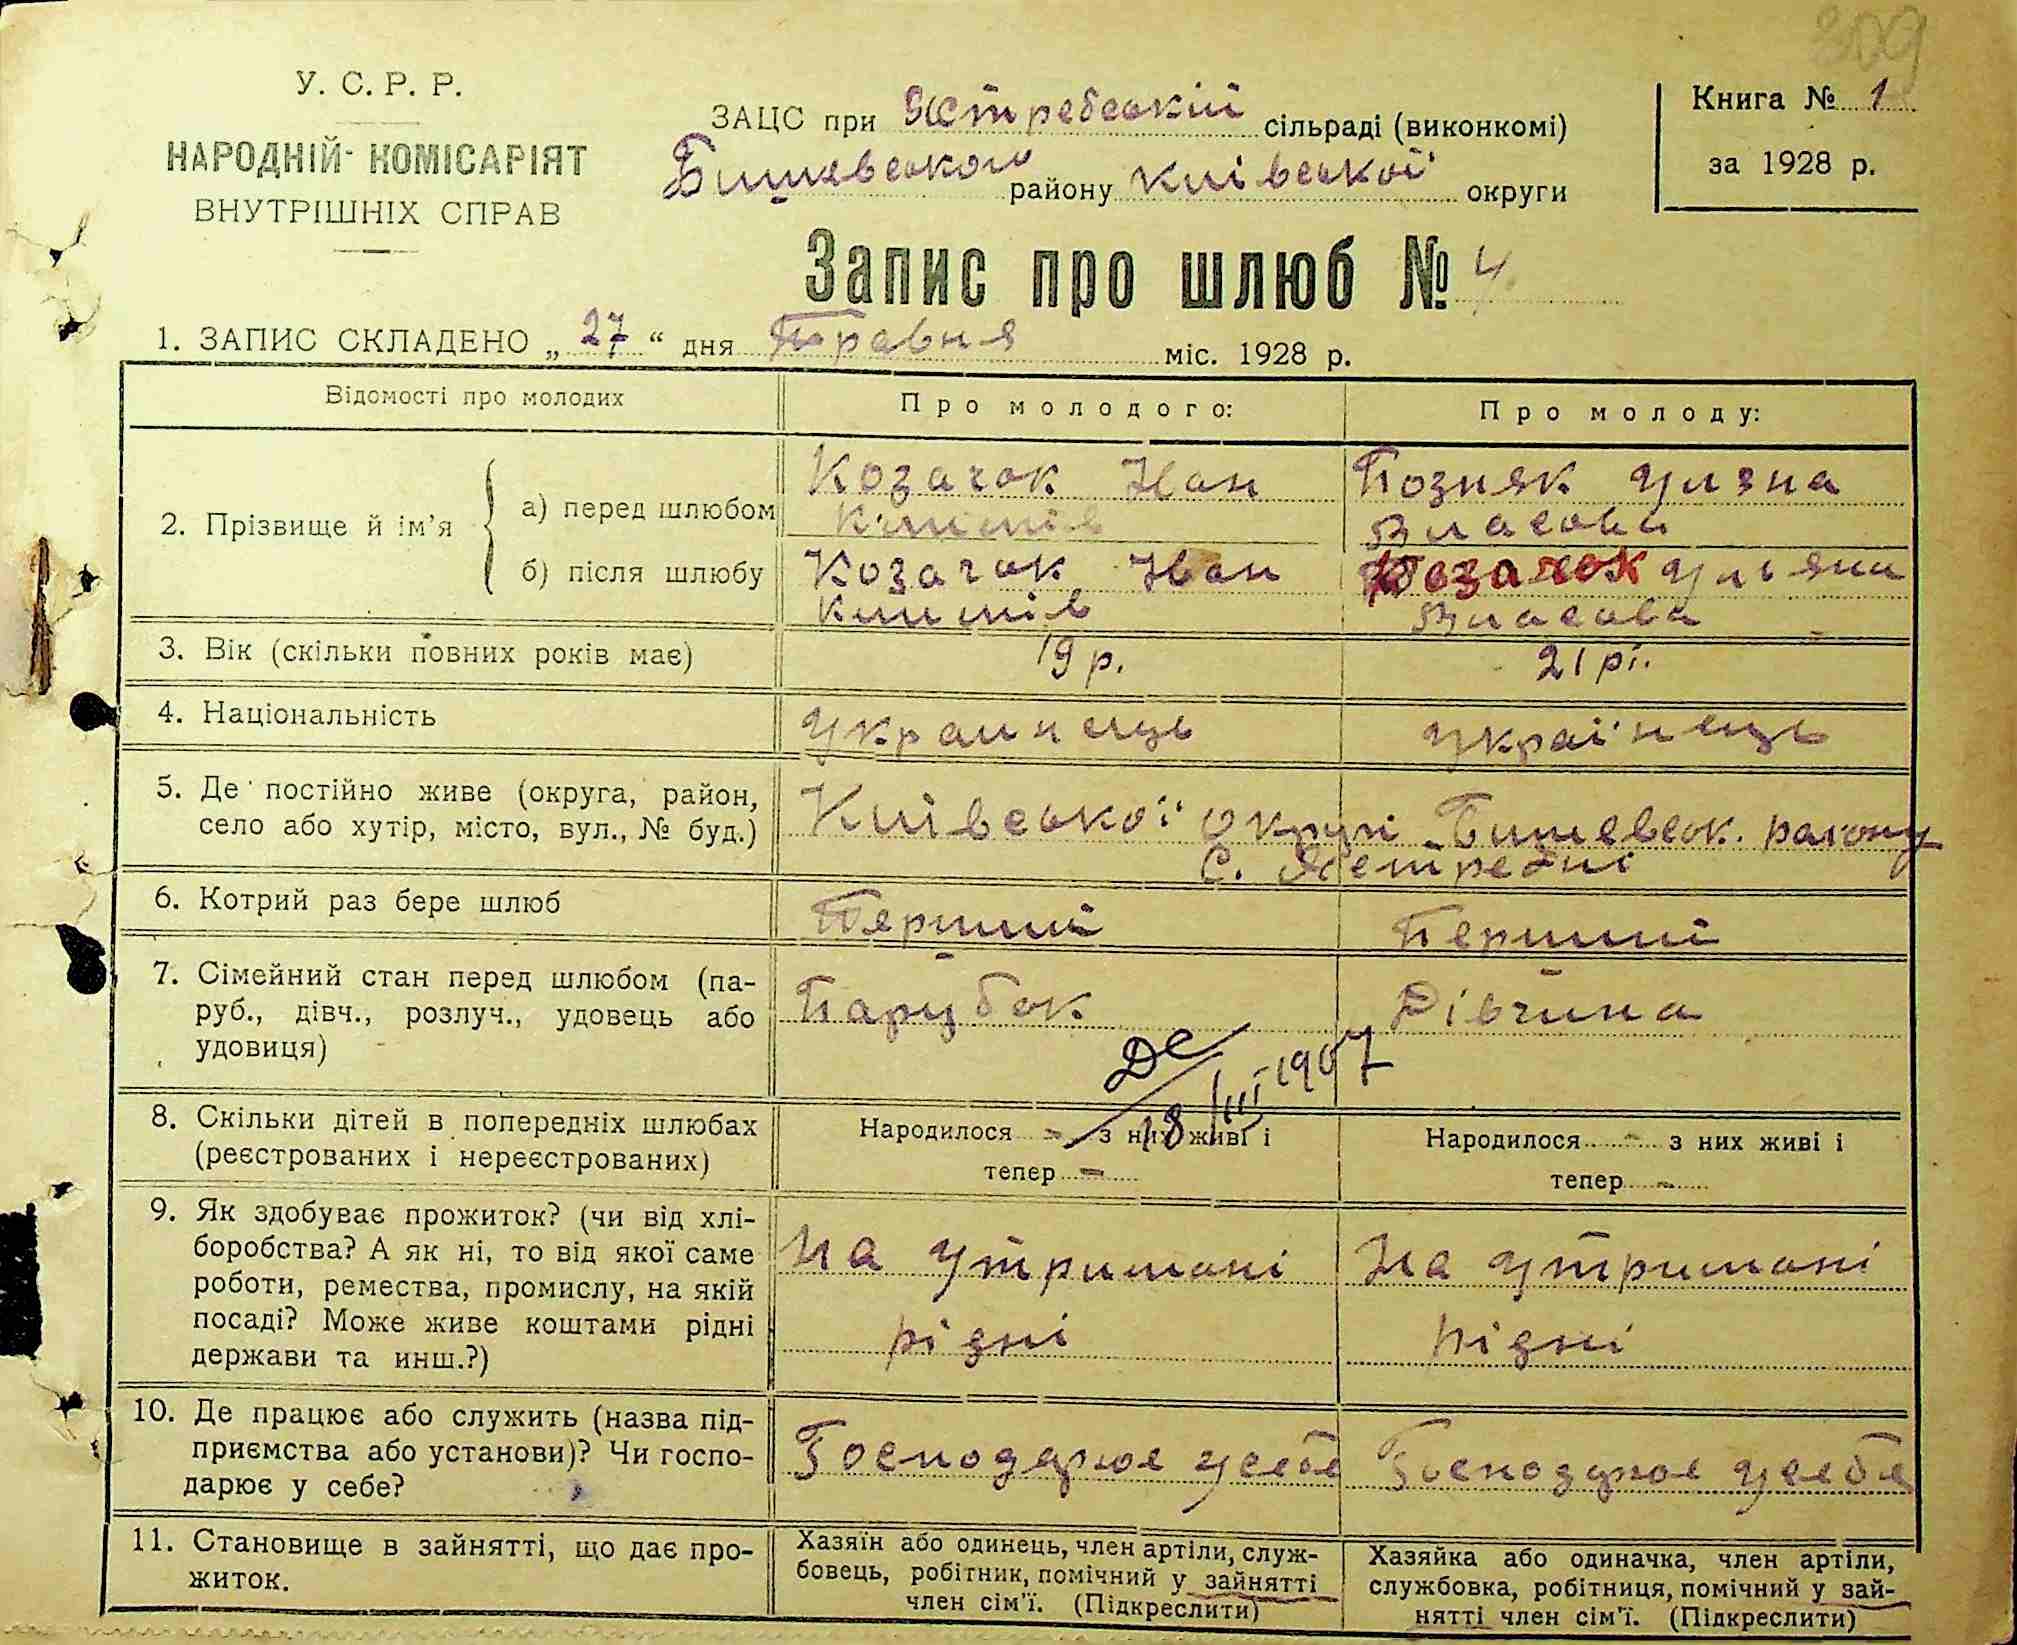 309
У. С. Р. Р.
НАРОДНІЙ КОМІСАРІЯТ
ВНУТРІШНІХ СПРАВ
ЗАЦС при Ястребській сільраді (виконкомі)
Бишевського району Київської округи
Книга № 1
за 1928 р.
Запис про шлюб № 4
1. ЗАПИС СКЛАДЕНО „27“ дня Травня міс. 1928 р.
Відомості про молодих
Про молодого:
Про молоду:
2. Прізвище й ім'я
а) перед шлюбом
Козачок Іван
Климів
Позняк Уляна
Власова
б) після шлюбу
Козачок Іван
Климів
Козачок Ульяна
Власова
3. Вік (скільки повних років має)
19 р.
21 рі.
4. Національність
Украинець
Україінець
5. Де постійно живе (округа, район,
село або хутір, місто, вул., № буд.)
Київської округи Бишевськ. району
С. Ястребні
6. Котрий раз бере шлюб
Перший
Перший
7. Сімейний стан перед шлюбом (па-
руб., дівч., розлуч., удовець або
удовиця)
Парубок
Дівчина
18/III 1907
8. Скільки дітей в попередніх шлюбах
(реєстрованих і нереєстрованих)
Народилося - з них живі і
тепер -
Народилося - з них живі і
тепер -
9. Як здобуває прожиток? (чи від хлі-
боробства? А як ні, то від якої саме
роботи, ремества, промислу, на якій
посаді? Може живе коштами рідні
держави та инш.?)
На утримані
рідні
На утримані
рідні
10. Де працює або служить (назва під-
приємства або установи)? Чи госпо-
дарює у себе?
Господарює усебе
Господарює усебе
11. Становище в зайнятті, що дає про-
житок.
Хазяїн або одинець, член артіли, служ-
бовець, робітник, помічний у зайнятті
член сім'ї. (Підкреслити)
Хазяйка або одиначка, член артіли,
службовка, робітниця, помічний у зай-
нятті член сім'ї. (Підкреслити)